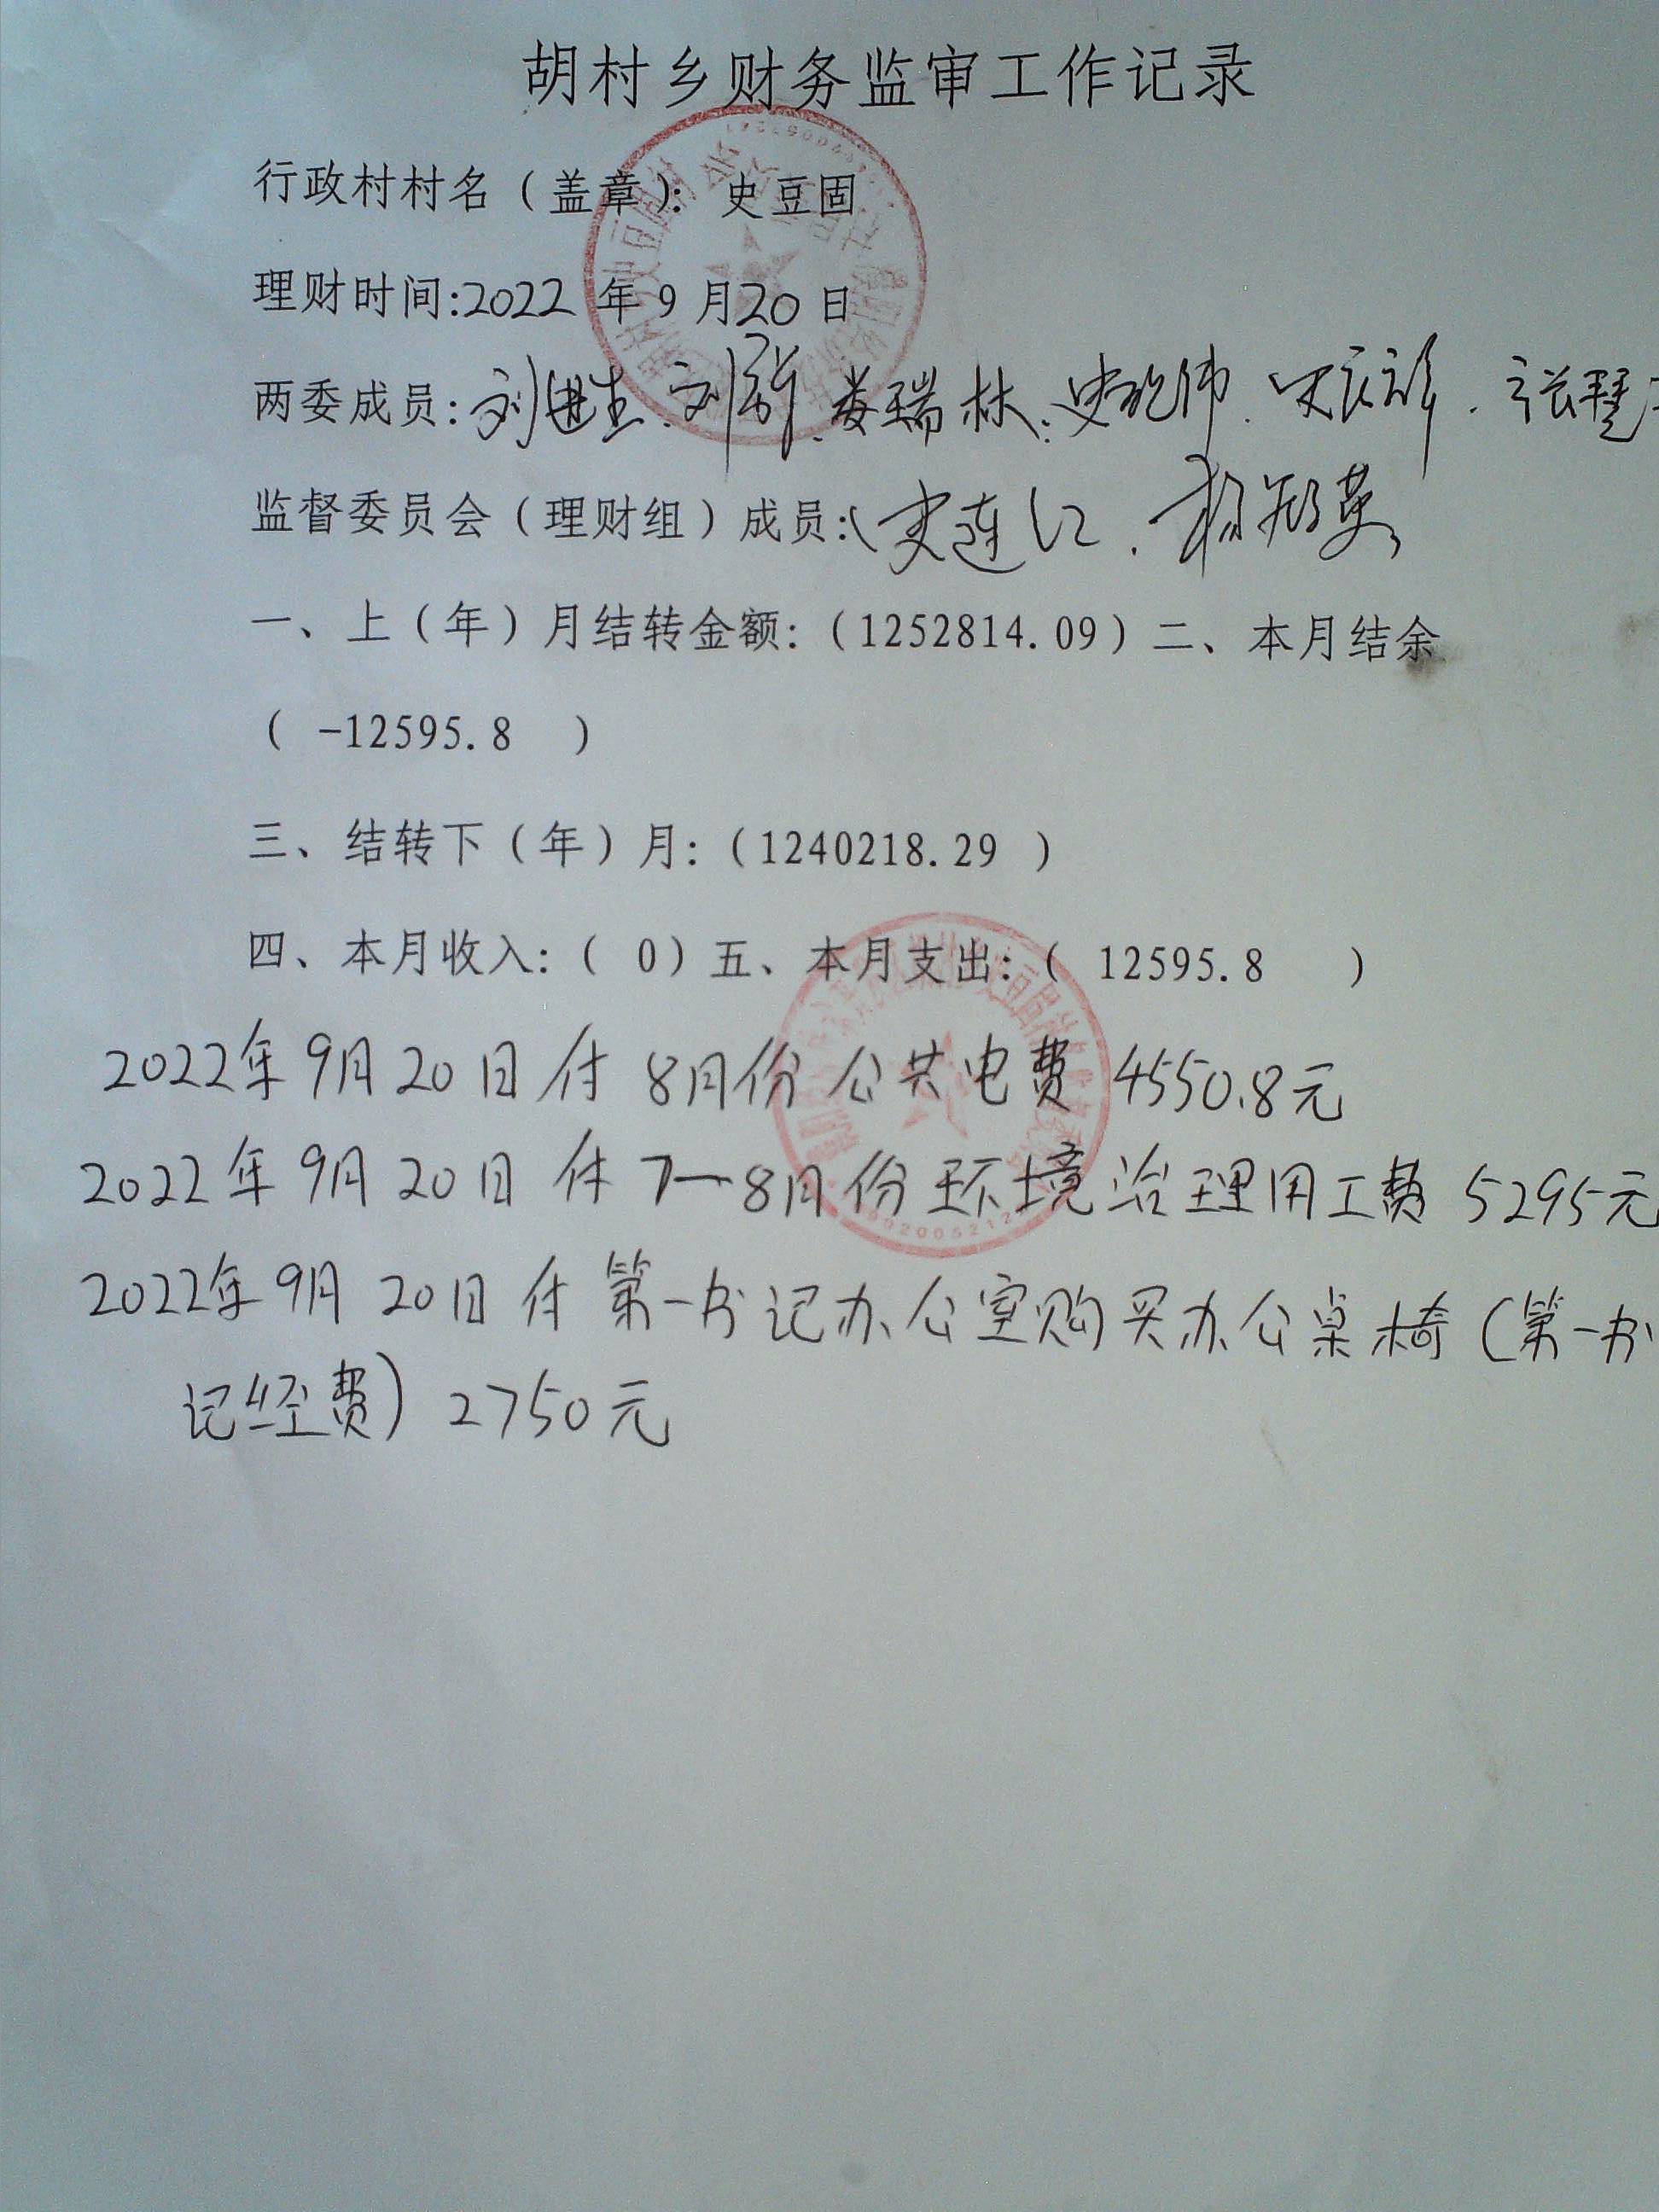 胡村乡财务监审工作记录
行政村村名（盖章）：史豆固
理财时间:2022 年 9 月20 日
两委成员: 刘进生、刘 、娄瑞林、史 伟、史 、张
监督委员会（理财组）成员: 史连江、 英
一、上（年）月结转金额:（1252814.09）二、本月结余
（ -12595.8 ）
三、结转下（年）月:（1240218.29 ）
四、本月收入:（ 0）五、本月支出:（ 12595.8 ）
2022年9月20日付8月份公共电费4550.8元
2022年9月20日付7—8月份环境治理用工费5295元
2022年9月20日付第一书记办公室购买办公桌椅（第一书
记经费）2750元